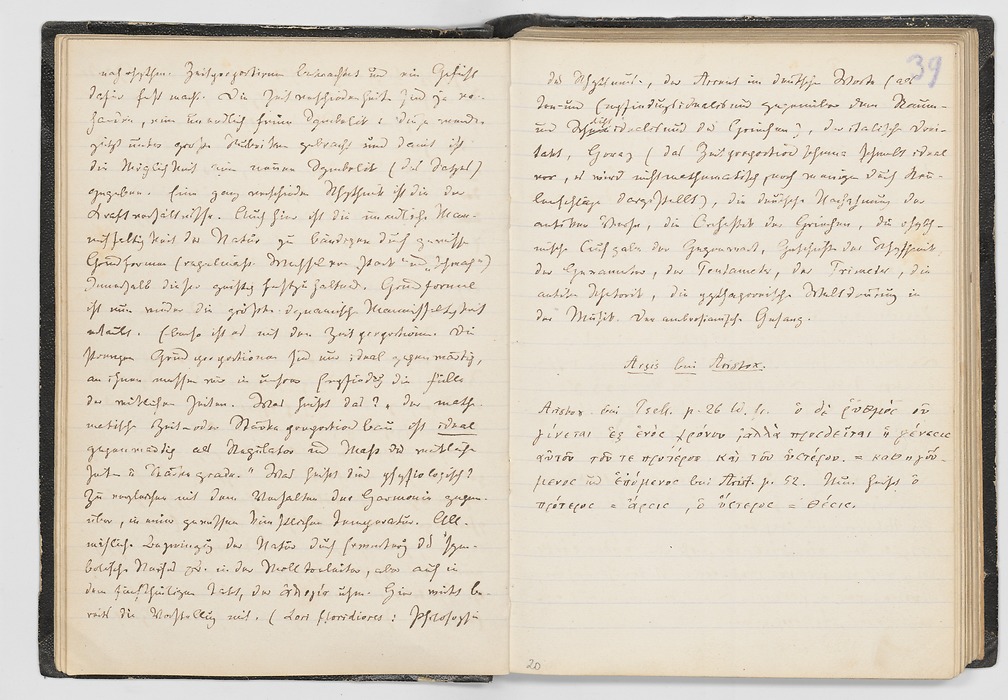 nach rhythm. Zeitproportionen betrachtet und ein Gefühl
dafür fest macht. Die Zeitverschiedenheiten sind ja vor-
handen, eine unendlich feine Symbolik: diese werden
jetzt unter große Rubriken gebracht und damit ist
die Möglichkeit einer neuen Symbolik (des Satzes)
gegeben. Eine ganz verschiedene Rhythmik ist die der
Kraftverhältnisse. Auch hier ist die unendliche Man-
nichfaltigkeit der Natur zu bändigen durch gewisse
Grundformen (regelmäß. Wechsel von „stark“ und „schwach“)
Innerhalb dieser geistig festzuhaltend. Grundformel
ist nun wieder die größte dynamische Mannichfaltigkeit
erlaubt. Ebenso ist es mit den Zeitproportionen. Die
strengen Grundproportionen sind nur ideal gegenwärtig,
an ihnen messen wir in unsrer Empfindung die Fülle
der wirklichen Zeiten. Was heißt das? „der mathe-
matische Zeit- oder Stärkeproportion bau ist ideal
gegenwärtig als Regulator und Maß der wirklichen
Zeiten u. Stärkegrade.“ Was heißt das physiologisch?
Zu vergleichen mit dem Verhalten der Harmonie gegen-
über, in einer gewissen künstlichen Temperatur. All-
mähliche Bezwingung der Natur durch Erweiterung des Sym-
bolischen in der Molltonleiter, aber auch in
dem fünftheiligen Takt, der ἀλογία usw. Hier wirkt be-
reits die Vorstellung mit. (Loci floridiores: Philosophie
39
des Rhythmus, der Accent im deutschen Worte (als
Ton und Empfindungsidealismus gegenüber dem Raum-
und Lichtidealismus der Griechen), der italische Vor-
takt, Horaz (das Zeitproportionsschema schwebt ideal
vor, es wird nicht mathematisch, noch weniger durch
dargestellt), die deutsche Nachahmung der
antiken Verse, die Orchestik der Griechen, die rhyth-
mische Aufgabe der Gegenwart, Geschichte der Rhythmik
des Hexameter, des Pentameter, des Trimeter, die
antike Rhetorik, die pythagoreische Weltordnung in
der Musik. Der ambrosianische Gesang.
Arsis bei Aristox.
Aristox. bei Psell. p. 26 W. ὁ δὲ ῥυθμὸς οὐ
γίνεται ἐξ ἑνὸς χρόνου ἀλλὰ προσδεῖται ἡ γένεσις
αὐτοῦ τοῦ τε προτέρου καὶ τοῦ ὑστέρου. = καθηγού-
μενος und ἑπόμενος bei Arist. p. 52. Nun heißt ὁ
πρότερος = ἄρσις, ὁ ὕστερος = θέσις.
20